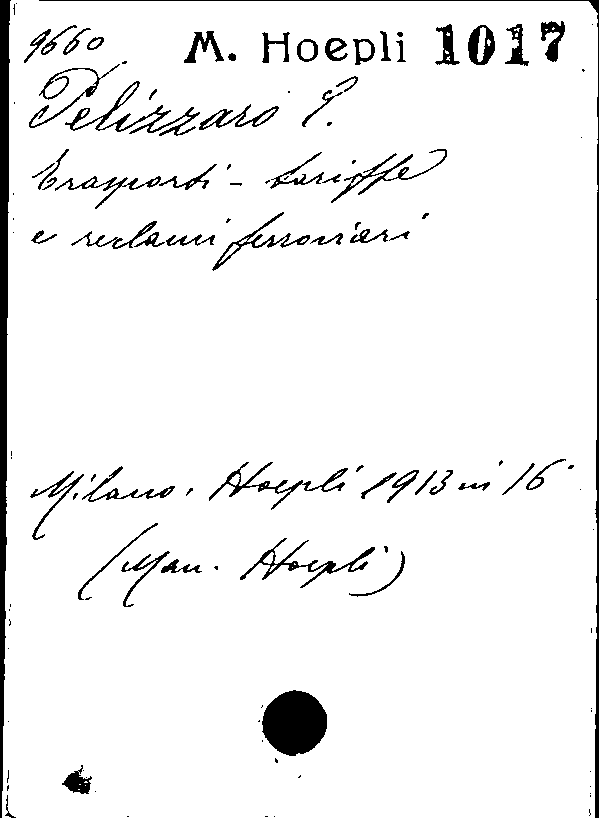 9660 M. Hoepli 1017
Pelizzaro E.
Trasporti - tariffe
e reclami ferroviari
Milano. Hoepli 1913 in 16°
(Man. Hoepli)